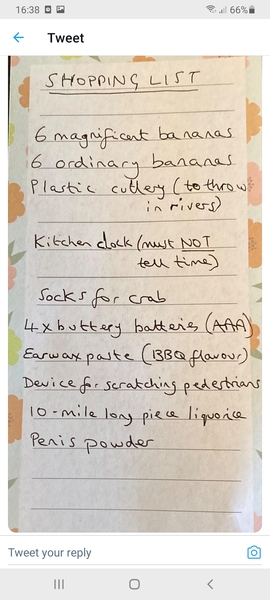 16:38
66%
Tweet
SHOPPING LIST
6 magnificent bananas
6 ordinary bananas
Plastic cutlery (to throw
in rivers)
Kitchen clock (must NOT
tell time)
Socks for crab
4 x buttery batteries (AAA)
Earwax paste (BBQ flavour)
Device for scratching pedestrians
10-mile long piece liquorice
Penis powder
Tweet your reply